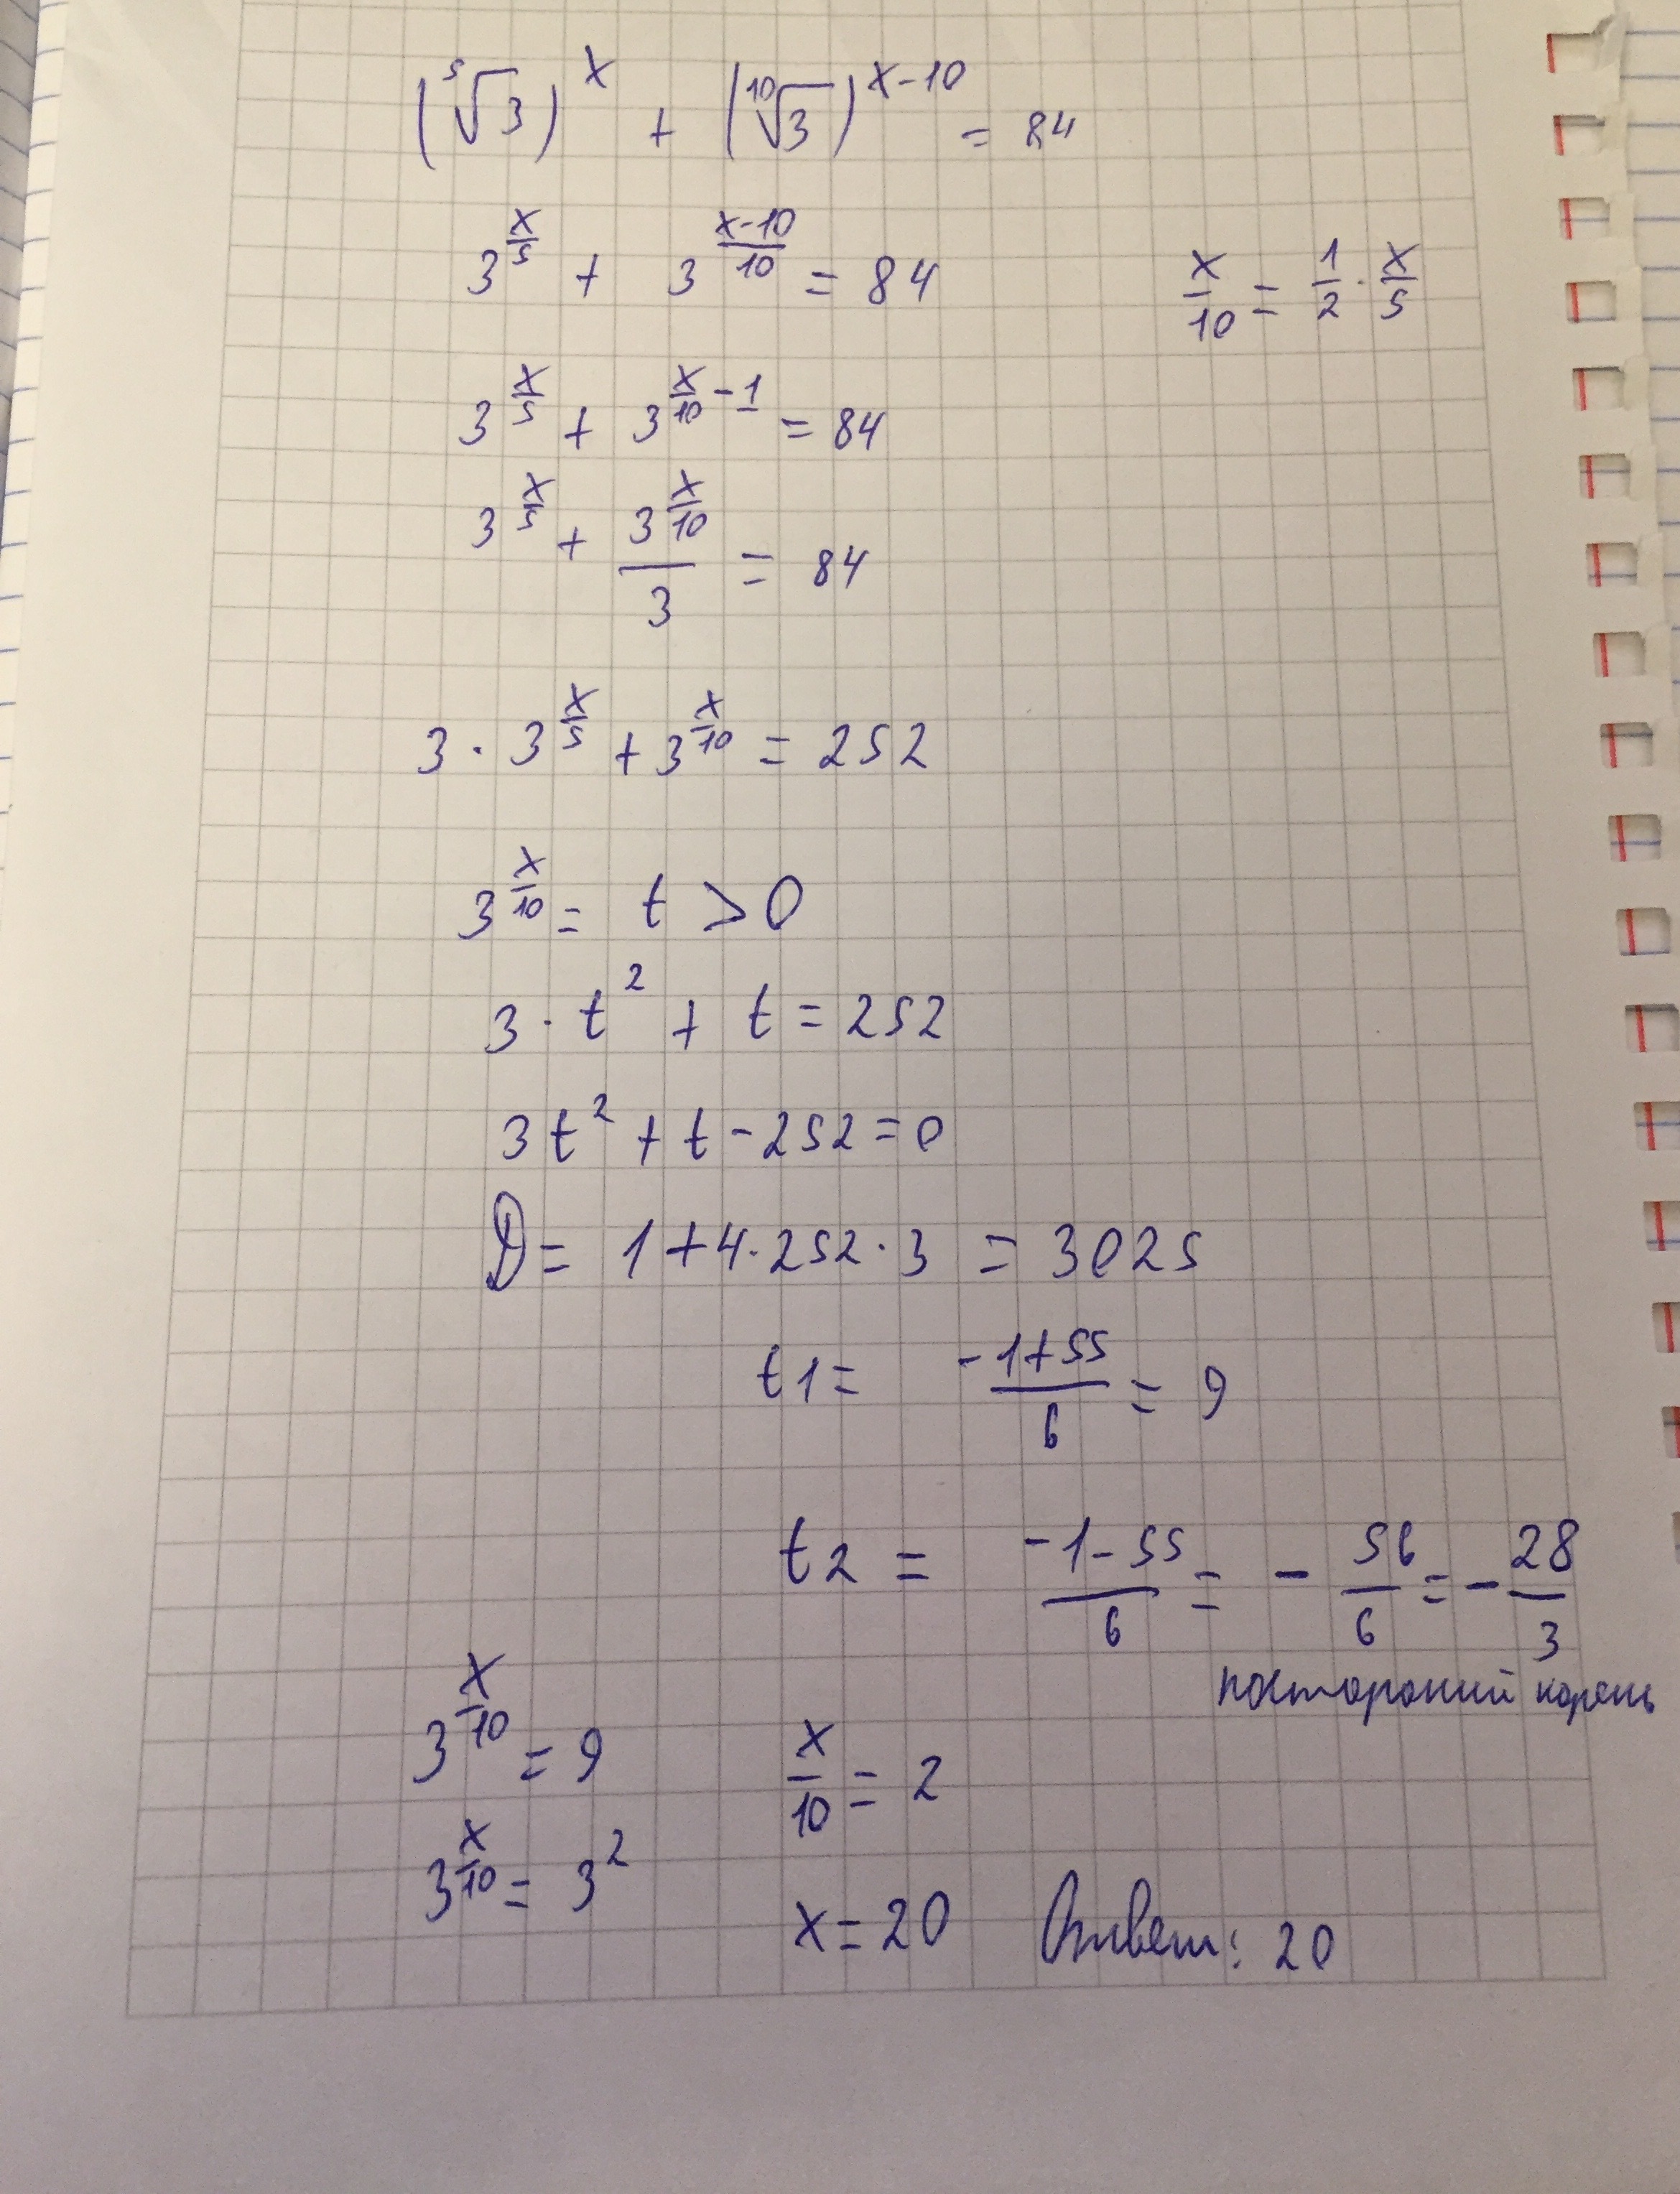 (⁵√3)^x + (¹⁰√3)^(x-10) = 84
3^(x/5) + 3^((x-10)/10) = 84
x/10 = 1/2 · x/5
3^(x/5) + 3^(x/10 - 1) = 84
3^(x/5) + 3^(x/10)/3 = 84
3 · 3^(x/5) + 3^(x/10) = 252
3^(x/10) = t > 0
3 · t² + t = 252
3t² + t - 252 = 0
D = 1 + 4 · 252 · 3 = 3025
t1 = (-1+55)/6 = 9
t2 = (-1-55)/6 = - 56/6 = - 28/3
посторонний корень
3^(x/10) = 9
x/10 = 2
3^(x/10) = 3²
x = 20
Ответ: 20